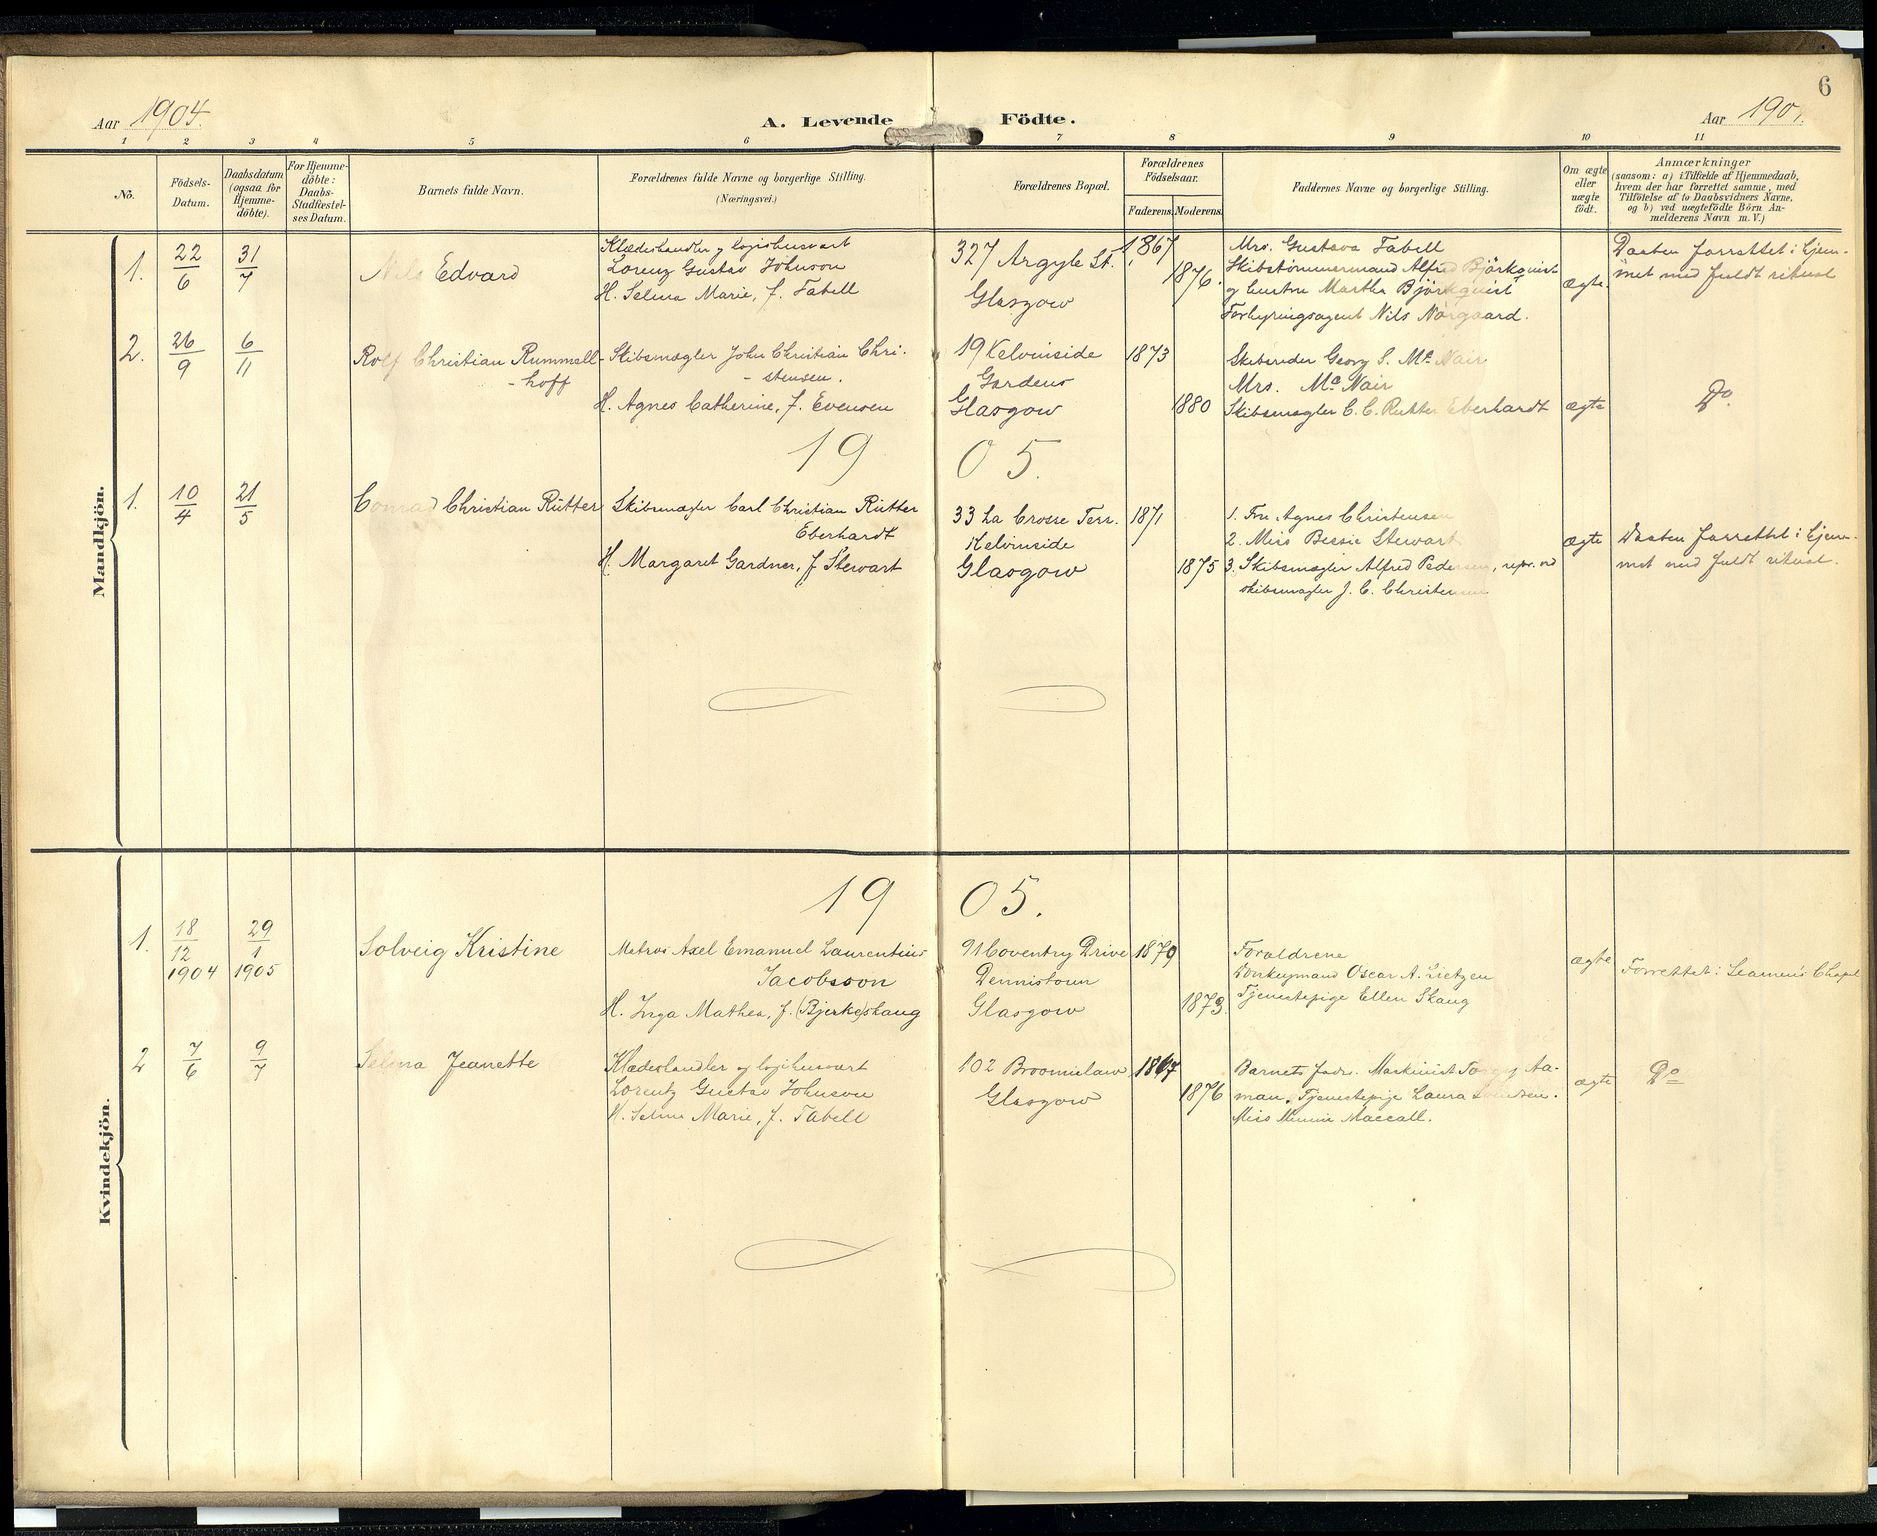 6
Aar 1904.
A. Levende Födte.
Aar 190
1 2 3 4 5 6 7 8 9 10 11
No.
Födsels-Datum.
Daabsdatum (ogsaa for Hjemme-döbte).
For Hjemme-döbte: Daabs-Stadfæstel-ses Datum.
Barnets fulde Navn.
Forældrenes fulde Navne og borgerlige Stilling.
(Næringsvei.)
Forældrenes Bopæl.
Forældrenes Födselsaar.
Faderens.
Moderens.
Faddernes Navne og borgerlige Stilling.
Om ægte eller uægte födt.
Anmærkninger
(saasom: a) i Tilfælde af Hjemmedaab,
hvem der har forrettet samme, med
Tilföielse af to Daabsvidners Navne,
og b) ved uægtefödte Börn An-
melderens Navn m. V.)
Mandkjön.
1. 22/6 31/7 Nils Edvard
Klædeshandler og logishusvært
Lorenz Gustav Johnson
H. Selma Marie, f. Tabell
327 Argyle St.
Glasgow
1867
1876.
Mrs. Gustava Tabell
Skibstømmermand Alfred Björkquist
og hustru Martha Björkquist
Forhyringsagent Nils Nørgaard.
ægte
Daaben forrettet i hjem-
met med fuldt ritual
2. 26/9 6/11 Rolf Christian Rummel-
-hoff
Skibsmægler John Christian Chri-
-stensen.
H. Agnes Catherine, f. Evensen
19 Kelvinside
Gardens
Glasgow
1873
1880
Skibsreder Georg S. Mc Nair
Mrs. Mc Nair
Skibsmægler C. C. Rutter Eberhardt
ægte
Do.
1905.
1. 10/4 21/5 Conrad Christian Rütter
Skibsmægler Carl Christian Rütter
Eberhardt
H. Margaret Gardner, f. Stewart
33 La Crosse Terr.
Kelvinside
Glasgow
1871
1875
1. Fru Agnes Christensen
2. Miss Bessie Stewart
3. Skibsmægler Alfred Pedersen, repr. ved
skibsmægler J. C. Christensen
ægte
Daaben forrettet i hjem-
met med fuldt ritual.
Kvindekjön.
1905.
1. 18/12 1904 29/1 1905 Solveig Kristine
Matros Axel Emanuel Laurentius
Jacobsson
H. Inga Mathea, f. (Bjerke)skaug
91 Coventry Drive
Dennistoun
Glasgow
1879
1873.
Forældrene
Donkeymand Oscar A. Lietzen
Tjenestepige Ellen Skaug
ægte
Forrettet i Seamen's Chapel
2 7/6 9/7 Selma Jeanette
Klædeshandler og logihusvært
Lorentz Gustav Johnson
H. Selma Marie, f. Tabell
102 Broomielaw
Glasgow
1867
1876
Barnets fadr. Maskinist Aa-
man. Tjenestepige Laura
Miss Minnie Maccall.
ægte
Do